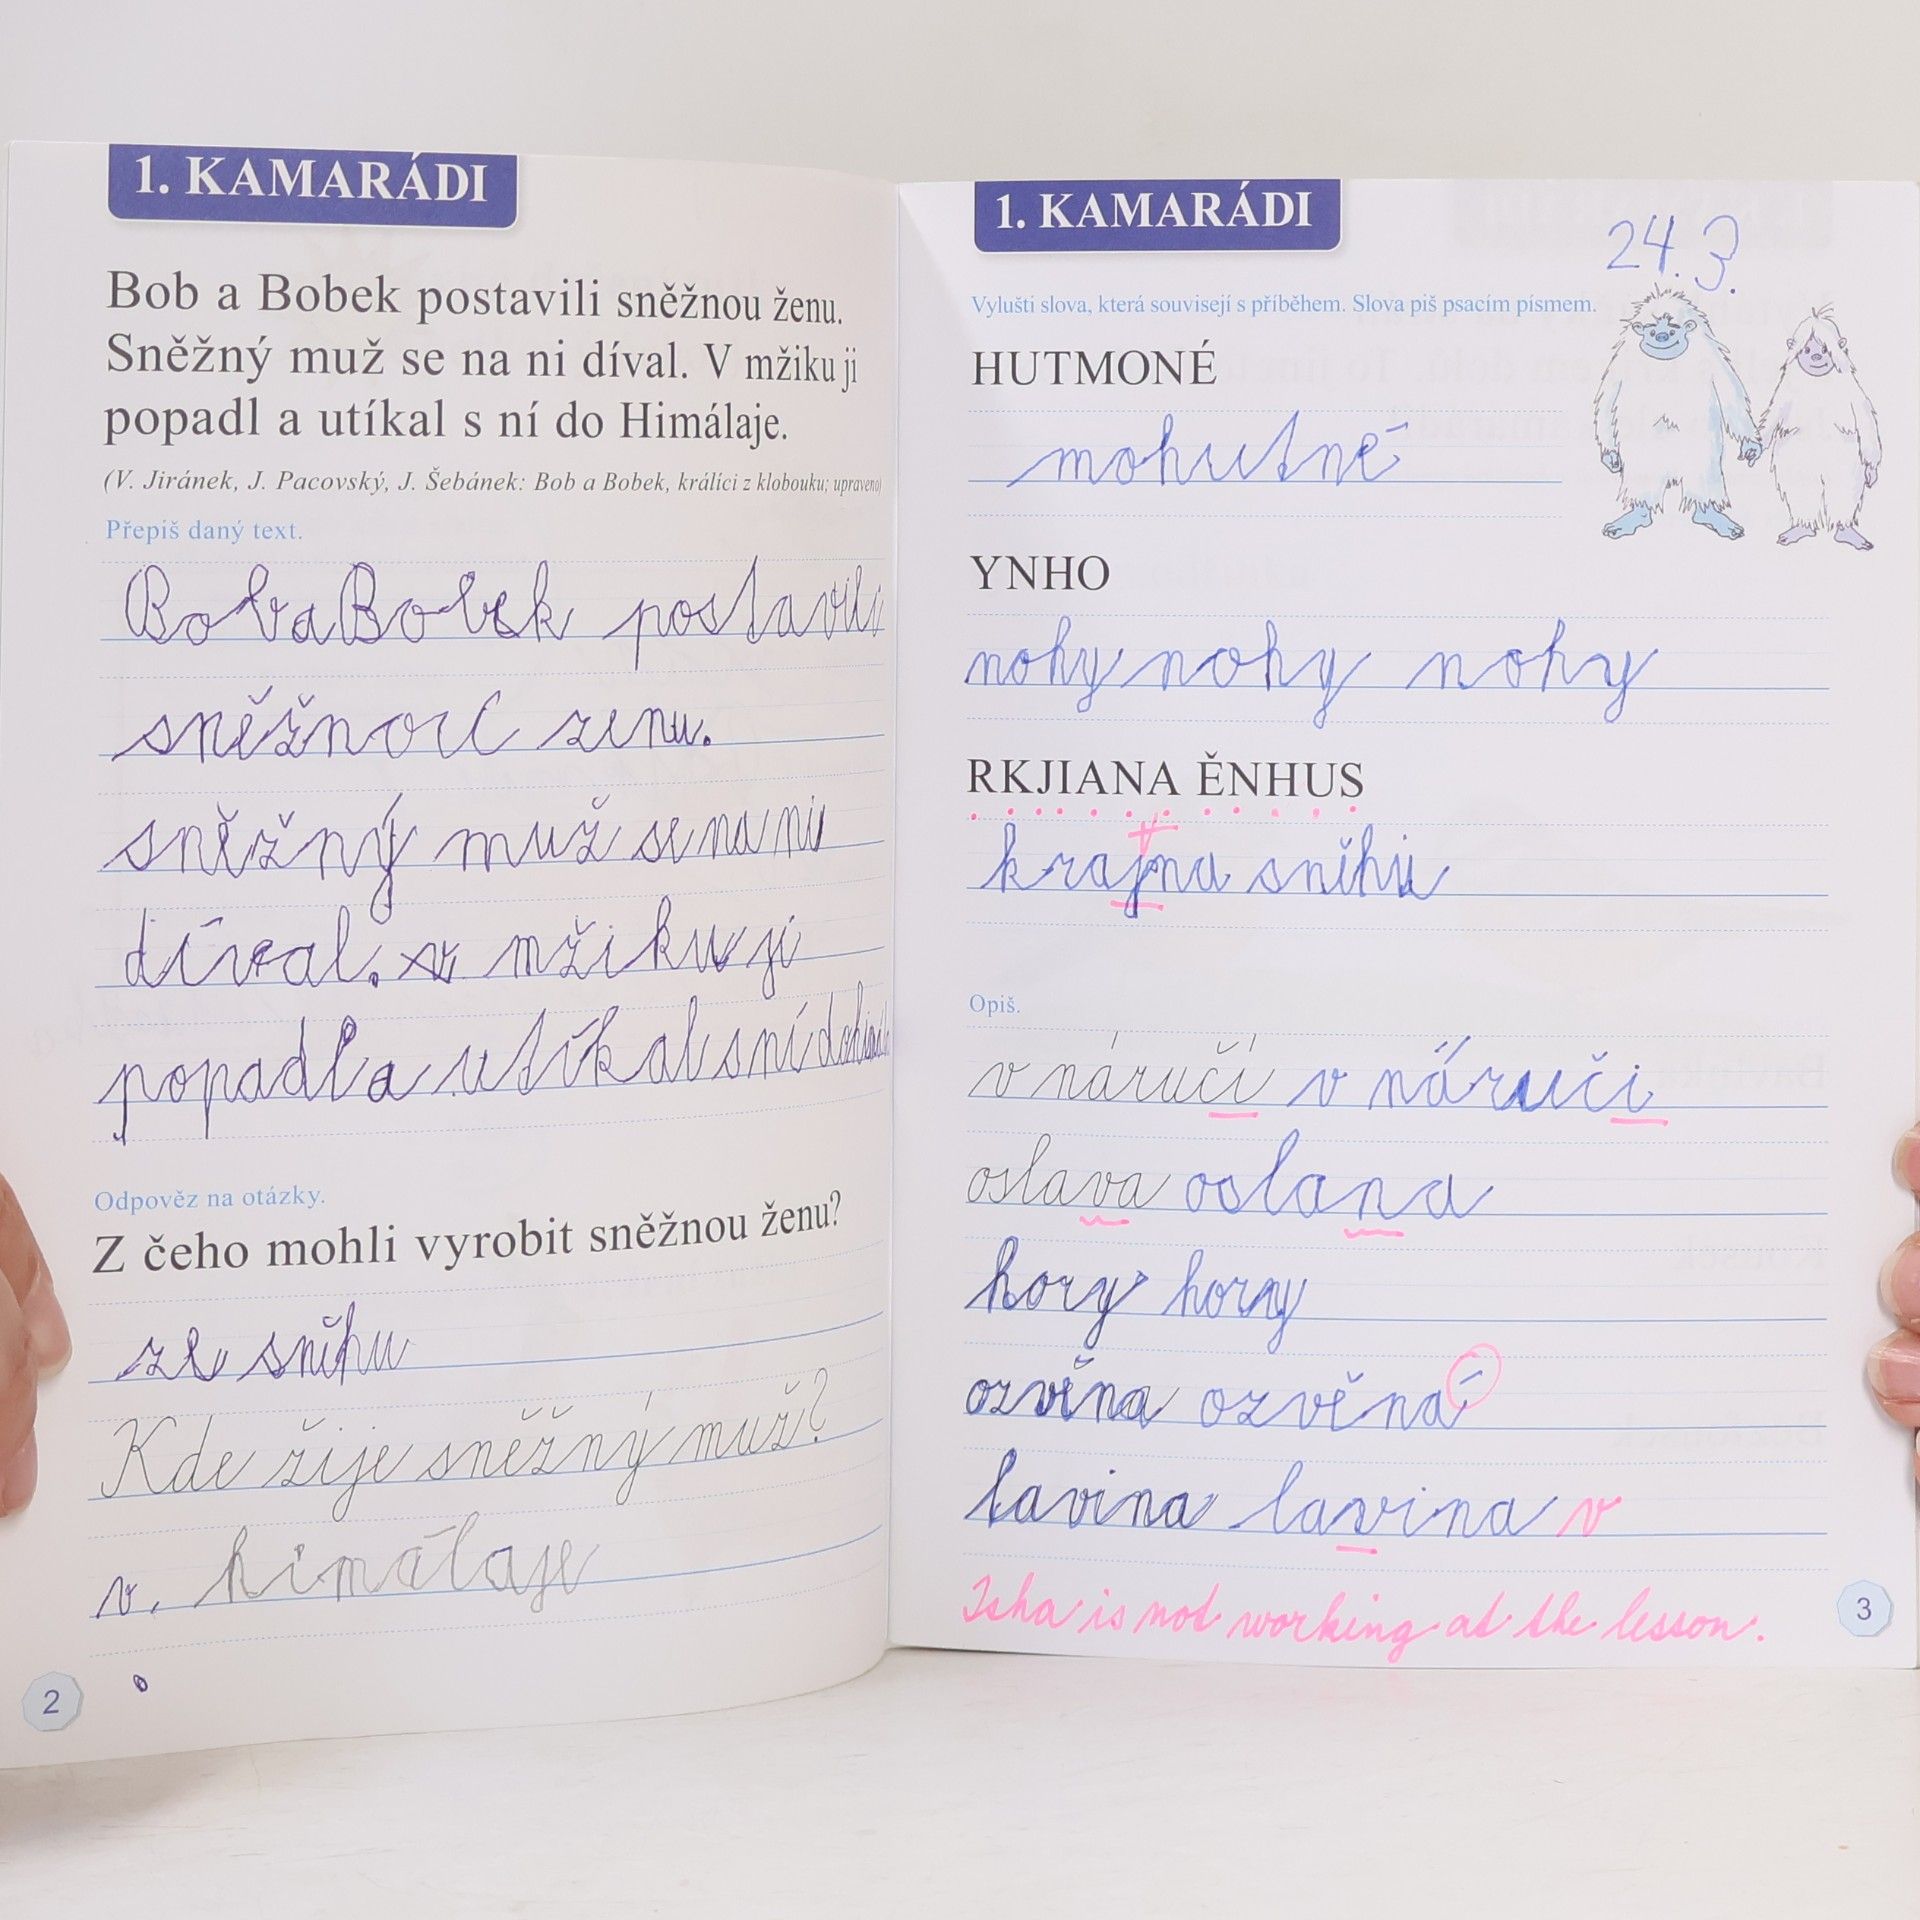 1. KAMARÁDI
Bob a Bobek postavili sněžnou ženu.
Sněžný muž se na ni díval. V mžiku ji
popadl a utíkal s ní do Himálaje.
(V. Jiránek, J. Pacovský, J. Šebánek: Bob a Bobek, králíci z klobouku; upraveno)
Přepiš daný text.
Bob a Bobek postavili
sněžnou zenu.
sněžný muž se na ni
díval. v mžiku ji
popadl a utíkal s ní do
Odpověz na otázky.
Z čeho mohli vyrobit sněžnou ženu?
ze sněhu
Kde žije sněžný muž?
v. himálaje
2
1. KAMARÁDI
24.3.
Vylušti slova, která souvisejí s příběhem. Slova piš psacím písmem.
HUTMONÉ
mohutné
YNHO
nohy nohy nohy
RKJIANA ĚNHUS
krajna sněhu
Opiš.
v náručí v náruči
oslava oslana
hory horny
ozvěna ozvěná
lavina lavina v
Isha is not working at the lesson.
3